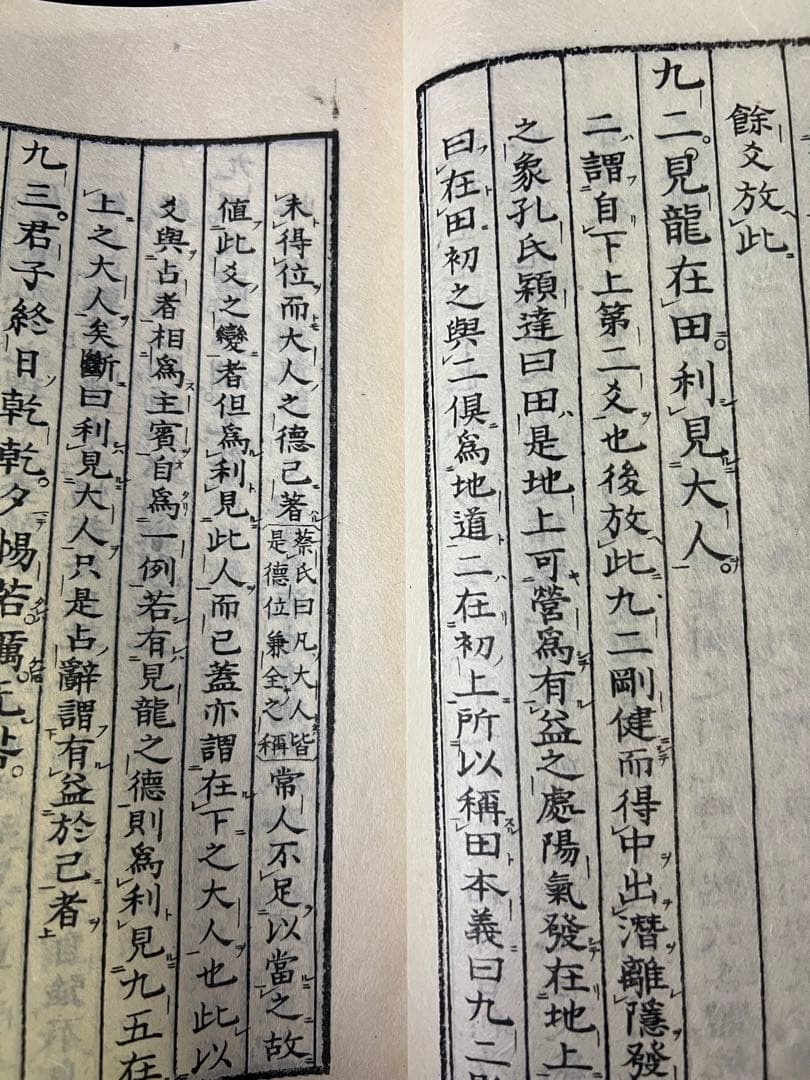 餘爻放此
九二。見龍在田。利見大人。
二謂自下上第二爻也後放此九二剛健而得中出潛離隱發
之象孔氏穎達曰田是地上可營爲有益之處陽氣發在地上
曰在田初之與二俱爲地道二在初上所以稱田本義曰九二
未得位而大人之德已著
蔡氏曰凡大人皆
是德位兼全之稱
常人不足以當之故
値此爻之變者但爲利見此人而已蓋亦謂在下之大人也此以
爻與占者相爲主賓自爲一例若有見龍之德則爲利見九五在
上之大人矣斷曰利見大人只是占辭謂有益於己者
九三。君子終日乾乾。夕惕若。厲。无咎。